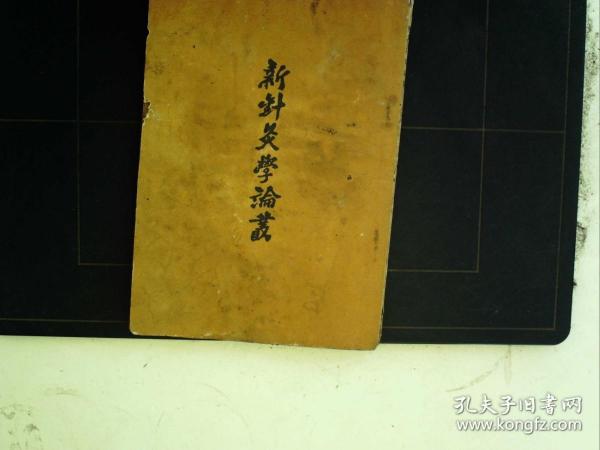 新針灸學論叢
孔夫子旧书网
www.kongfz.com